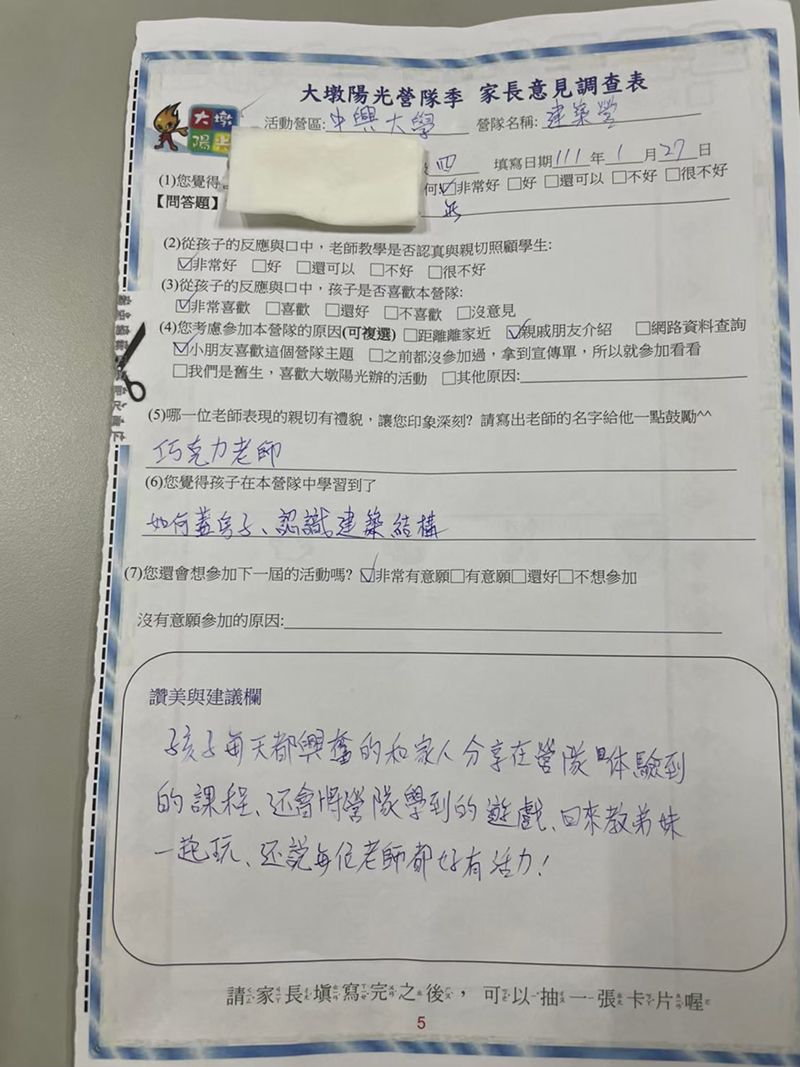 大墩陽光營隊季 家長意見調查表
大墩
陽光
活動營區:中興大學 營隊名稱:建築營
四 填寫日期111年1月27日
(1)您覺得 何☑非常好 □好 □還可以 □不好 □很不好
【問答題】 無
(2)從孩子的反應與口中，老師教學是否認真與親切照顧學生:
☑非常好 □好 □還可以 □不好 □很不好
(3)從孩子的反應與口中，孩子是否喜歡本營隊:
☑非常喜歡 □喜歡 □還好 □不喜歡 □沒意見
(4)您考慮參加本營隊的原因(可複選) □距離離家近 ☑親戚朋友介紹 □網路資料查詢
☑小朋友喜歡這個營隊主題 □之前都沒參加過，拿到宣傳單，所以就參加看看
□我們是舊生，喜歡大墩陽光辦的活動 □其他原因:
(5)哪一位老師表現的親切有禮貌，讓您印象深刻? 請寫出老師的名字給他一點鼓勵^^
巧克力老師
(6)您覺得孩子在本營隊中學習到了
如何蓋房子、認識建築結構
(7)您還會想參加下一屆的活動嗎? ☑非常有意願□有意願□還好□不想參加
沒有意願參加的原因:
讚美與建議欄
孩子每天都興奮的和家人分享在營隊體驗到
的課程、還會將營隊學到的遊戲、回來教弟妹
一起玩、還說每位老師都好有活力!
請家長填寫完之後，可以抽一張卡片喔
5